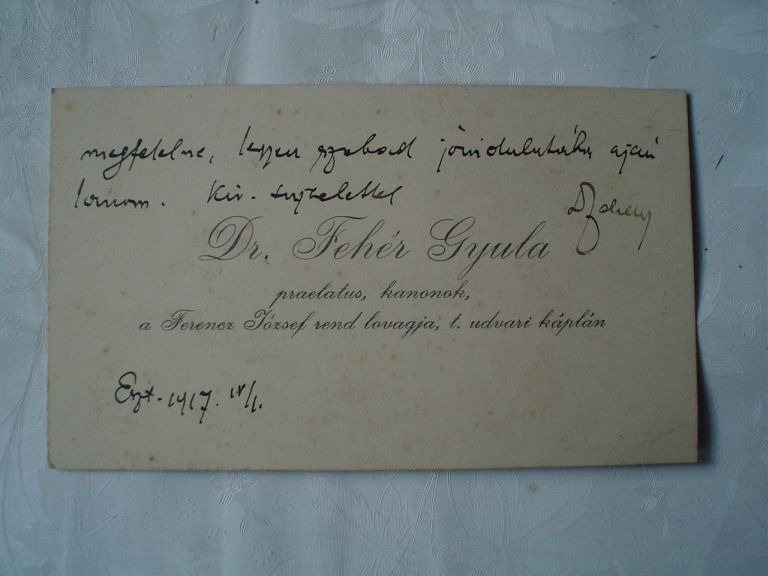 megfelelne, legyen szabad jóindulatába aján
lanom. Kiv. tisztelettel
Dr. Fehér Gyula
praelatus, kanonok,
a Ferencz József rend lovagja, t. udvari káplán
Eszt. 1917. IV/1.